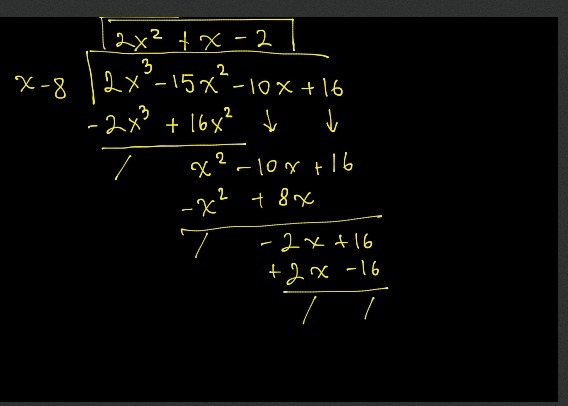 2x² + x - 2
x-8 2x³-15x²-10x+16
-2x³ + 16x² ↓ ↓
/ x²-10x+16
-x² + 8x
/ -2x+16
+2x-16
/ /